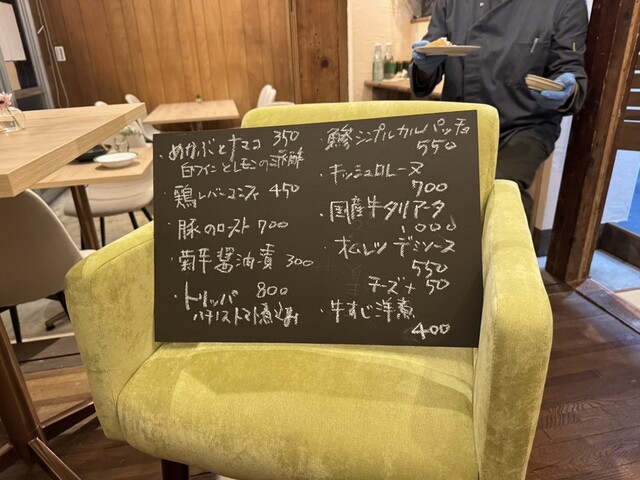 ・めかぶとナマコ 350
白ワインとレモンの三杯酢
・鶏レバーコンフィ 450
・豚のロースト 700
・菊芋醤油漬 300
・トリッパ 800
ハチノストマト煮込み
・鯵シンプルカルパッチョ
550
・キッシュロレーヌ
700
・国産牛タリアータ
1,000
・オムレツ デミソース
550
チーズ+50
・牛すじ洋煮
400